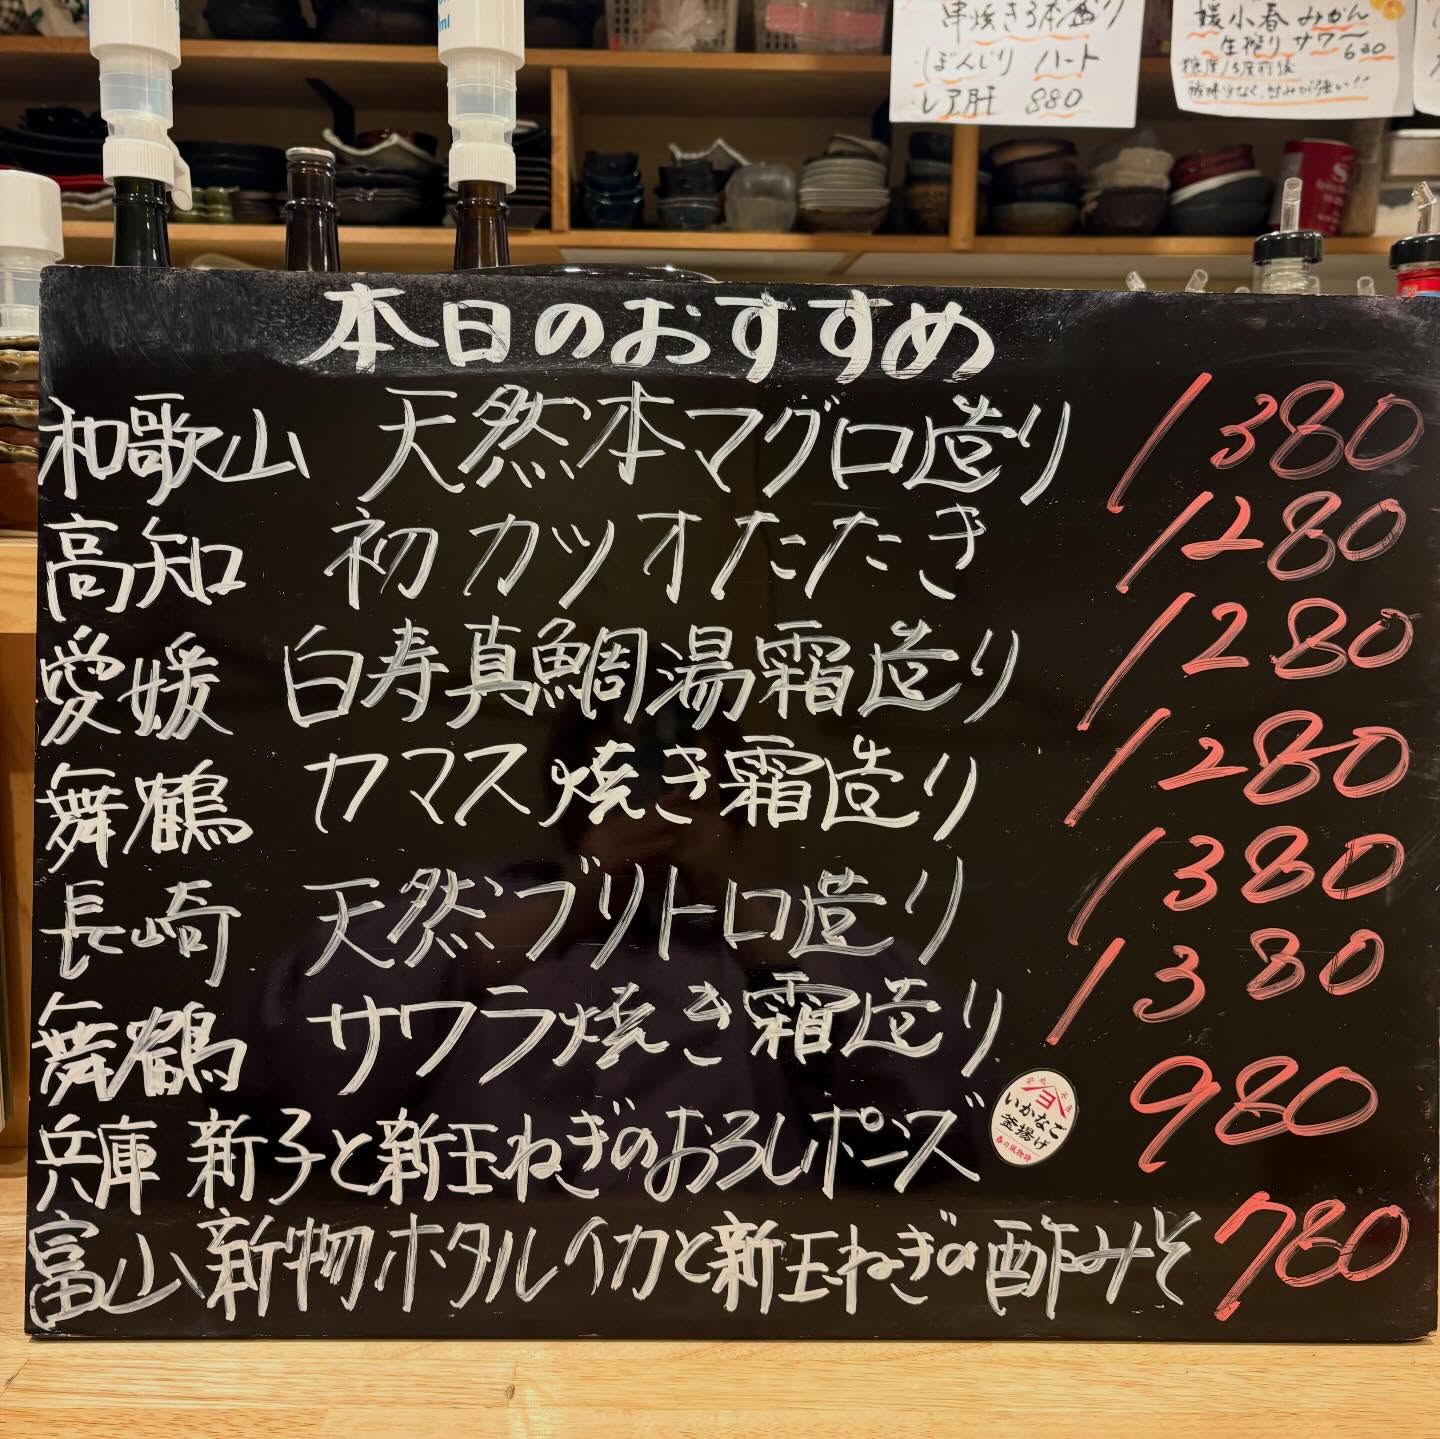 串焼き3本盛り
ぼんじり ハート
レア肝 880
媛小春みかん
生搾りサワー
630
糖度15度前後
酸味少なく、甘みが強い!!
本日のおすすめ
和歌山 天然本マグロ造り 1380
高知 初カツオたたき 1280
愛媛 白寿真鯛湯霜造り 1280
舞鶴 カマス焼き霜造り 1280
長崎 天然ブリトロ造り 1380
舞鶴 サワラ焼き霜造り 1380
兵庫 新子と新玉ねぎのおろしポンズ 980
いかなご
釜揚げ
春の風物詩
富山 新物ホタルイカと新玉ねぎの酢みそ 780